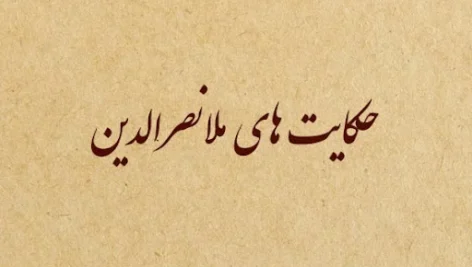 حکایت های ملا نصرالدین